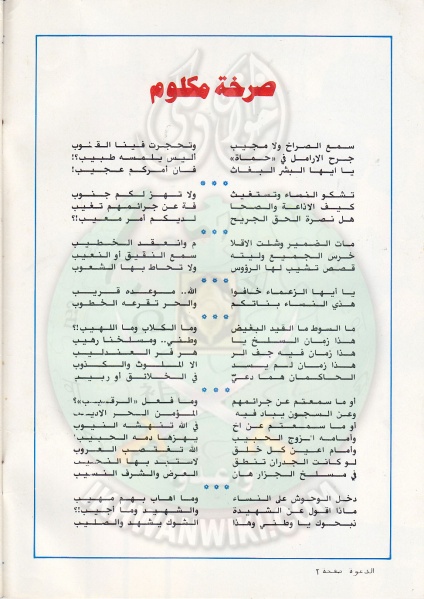 صرخة مكلوم
سمع الصراخ ولا مجيب وتحجرت فينا القلوب
جرح الارامل في «حماة» أليس يلمسه طبيب؟!
يا ايها البشر البغاث فان أمركم عجيب!
* * *
تشكو النساء وتستغيث ولا تهز لكم جنوب
كيف الاذاعة والصحا فة عن جرائمهم تغيب
هل نصرة الحق الجريح لديكم أمر معيب؟!
* * *
مات الضمير وشلت الاقلا م وانعقد الخطيب
خرس الجميع وليته سمع النقيق أو النعيب
قصص تشيب لها الرؤوس ولا تحاط بها الشعوب
* * *
يا أيها الزعماء خافوا الله.. موعده قريب
هذي النساء بناتكم والحر تقرعه الخطوب
* * *
ما السوط ما القيد البغيض وما الكلاب وما اللهيب!؟
هذا زمان السلخ يا وطني.. ومسلخنا رهيب
هذا زمان فيه جف الز هر فر العندليب
هذا زمان لم يسد الا الملوث والكذوب
الحاكمان هما دعيّ في الخلائق أو ربيب
* * *
او ما سمعتم عن جرائمهم وما فعل «الرقيب»؟
وعن السجون يباد فيه المؤمن الحر الاديب
أو ما سمعتم عن اخ في الله تنهشه النيوب
وأمامه الزوج الحبيب يهزها دمه الحبيب
وأمام اعين كل خلق الله تغتصب العروب
لو كانت الجدران تنطق لاستبد بها النحيب
في مسلخ الجزار هان العرض والشرف النسيب
* * *
دخل الوحوش على النساء وما اهاب بهم مهيب
ماذا اقول عن الشهيدة والشهيد وما أجيب؟!
نبحوك يا وطني وهذا الشوك يشهد والصليب
الدعوة صفحة ٢
IKHWANWIKI.COM